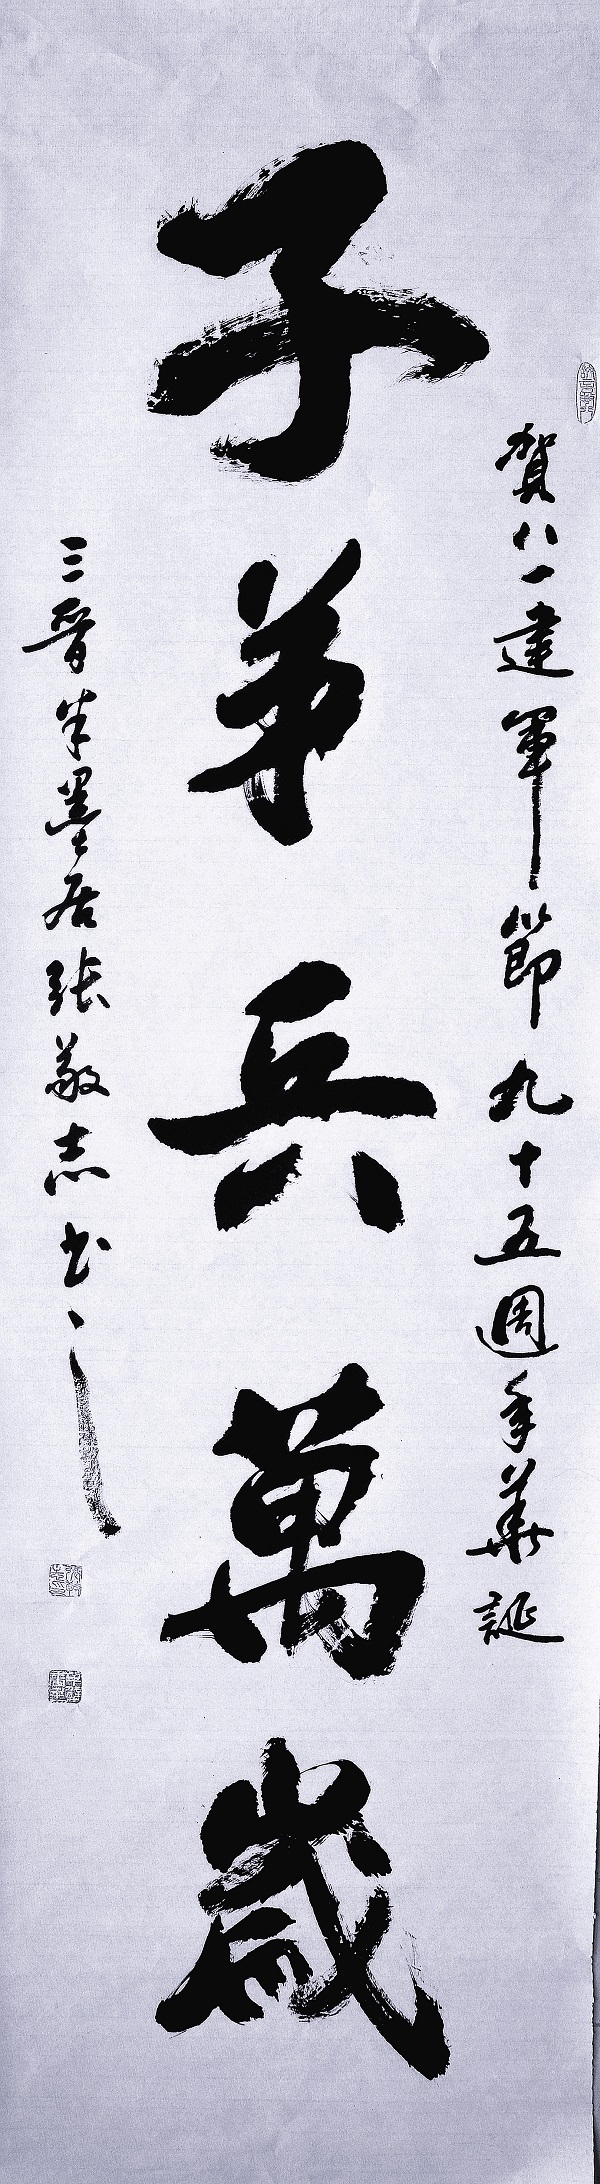 賀八一建軍節九十五週年華誕
子弟兵萬歲
三晉半墨居張敬志书